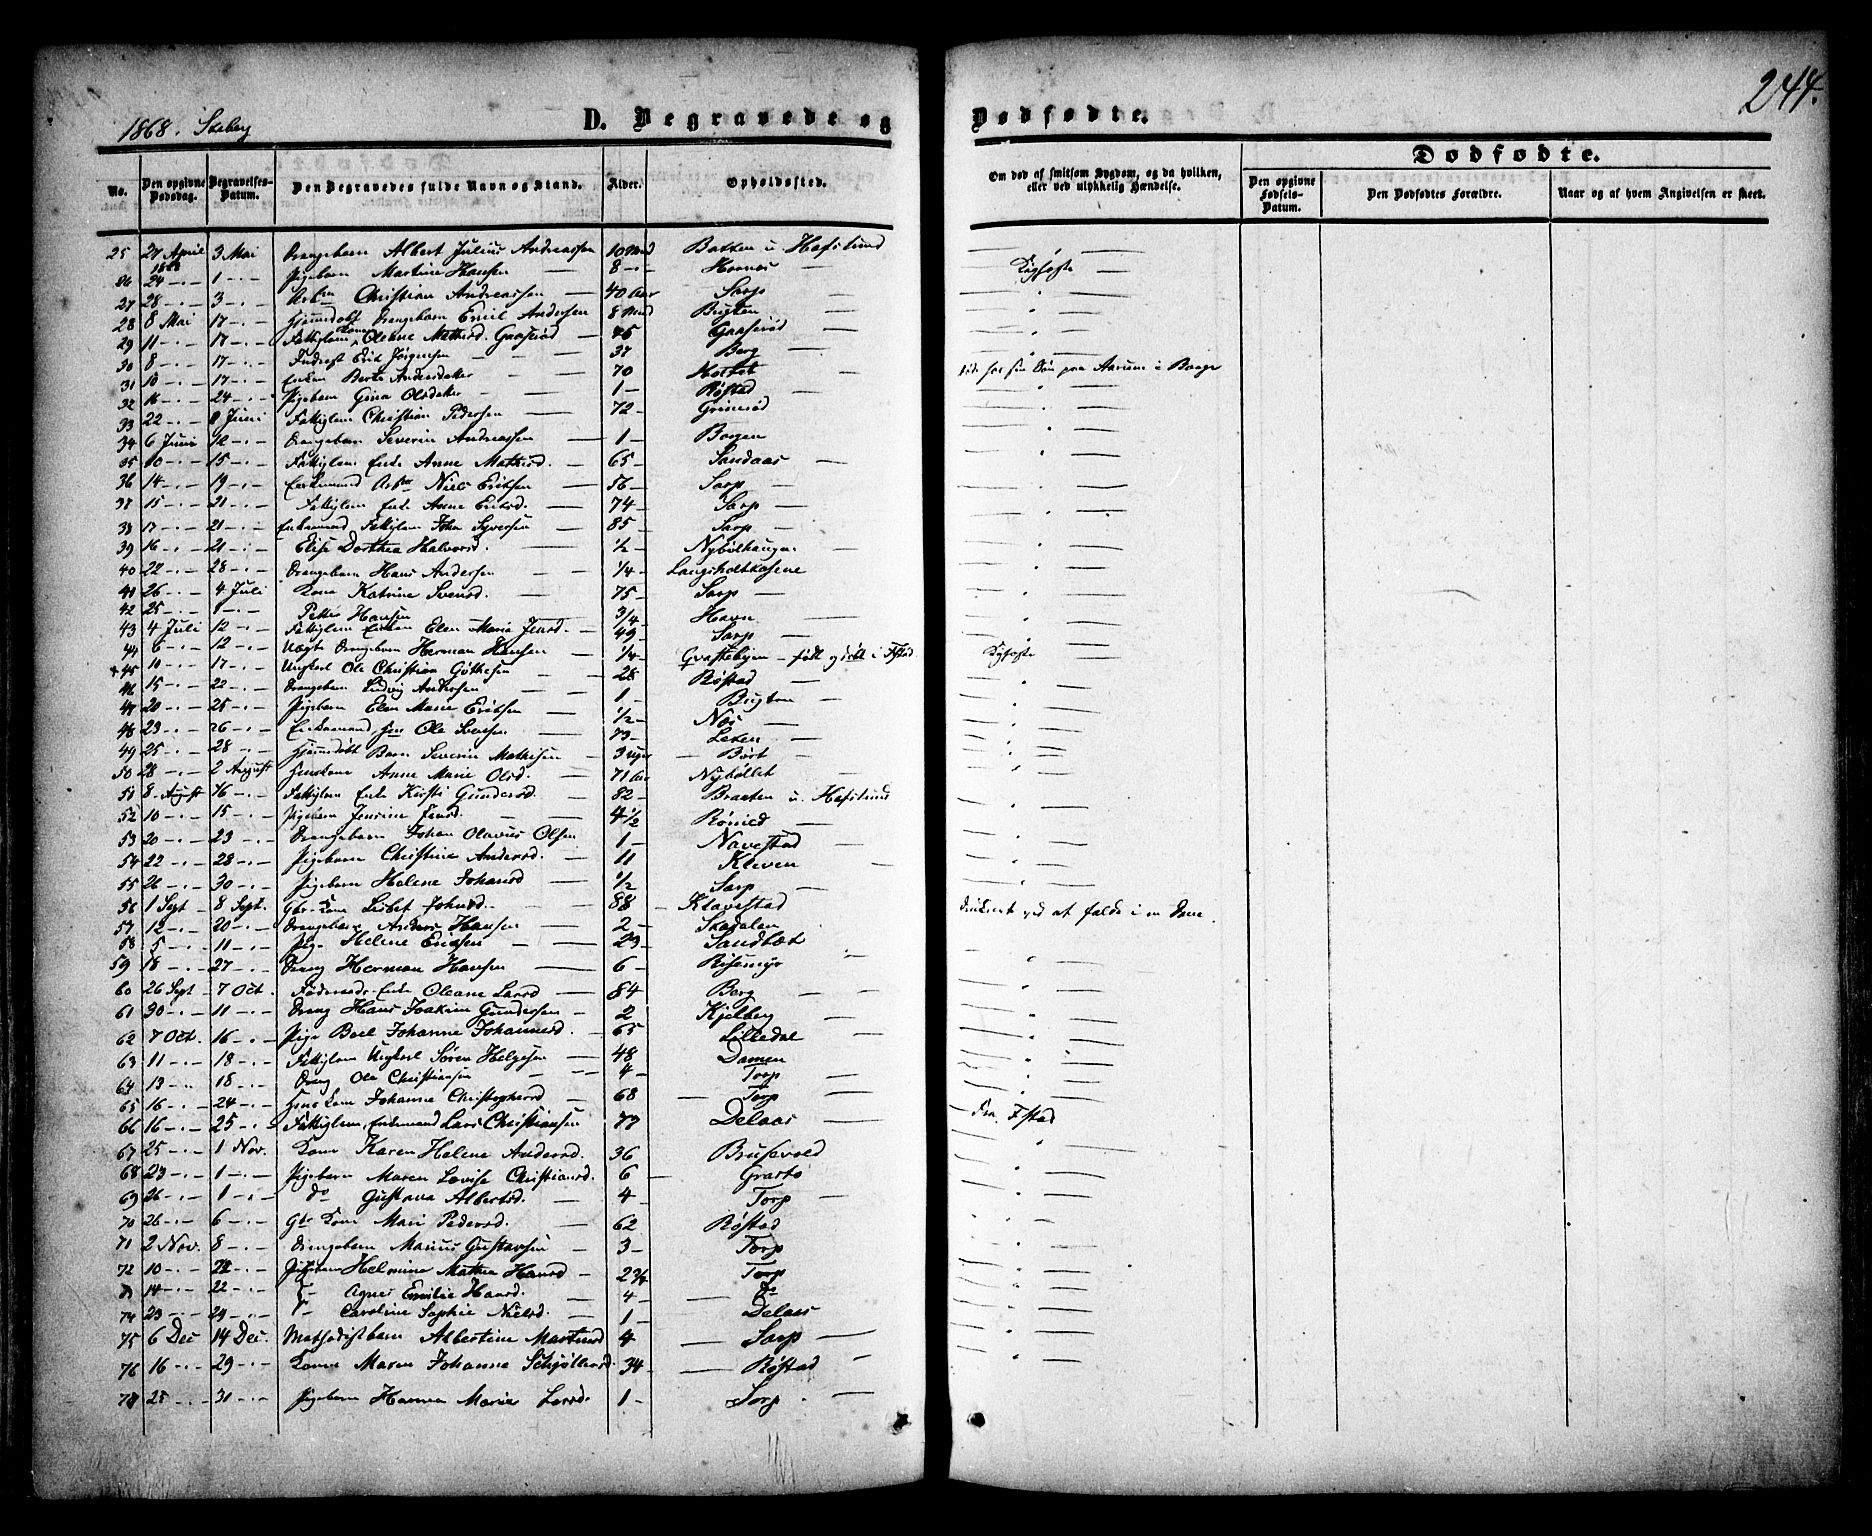 244.
1868. Skeberg
D. Begravede og Dødfødte.
Dødfødte.
No. Den opgivne Dødsdag. Begravelses-Datum. Den Begravedes fulde Navn og Stand. Alder. Opholdssted. Om død af smitsom Sygdom, og da hvilken, eller ved ulykkelig Hændelse. Den opgivne Fødsels-Datum. Den Dødfødtes Forældre. Naar og af hvem Angivelsen er skeet.
25 27 April 3 Mai Drengebarn Albert Julius Andreassen 10 Mnd Bakken u. Hafslund
1868
26 24 - - 1 - - Pigebarn Martine Hansen 8 - - Hornnes Kighoste
27 28 - - 3 - - Christian Andreassen 40 Aar Sarp
28 8 Mai 17 - - Hjemmedøbt Drengebarn Emil Andersen 8 Mnd Bugten
29 11 - - 17 - - Fattiglem Kone Oleane Mathisd. Gaaserød 45 Gaaserød
30 8 - - 17 - - Inderst Erik Jørgensen 37 Berg
31 10 - - 17 - - Enken Berte Andersdatter 70 døde hos sin Søn paa Aarum i Borge
32 16 - - 24 - - Pigebarn Gina Olsdatter 1 - Røstad
33 22 - - 1 Juni Fattiglem Christian Pedersen 72 - Grimsrød
34 6 Juni 12 - - Drengebarn Severin Andreassen 1 - Borgen
35 10 - - 15 - - Fattiglem Enke Anne Mathisd. 65 - Sandaas
36 14 - - 19 - - Enkemand Arbm Niels Eriksen 56 - Sarp
37 15 - - 21 - - Fattiglem Enke Anne Eriksd. 74 - Sarp
38 17 - - 21 - - Enkemand Fattiglem Johan Syversen 85 - Sarp
39 16 - - 21 - - Elise Dorthea Halvorsd. 1/2 - Nybølhaugen
40 22 - - 28 - - Drengebarn Hans Andersen 1/4 - Langsholtkasene
41 26 - - 4 Juli Kone Katrine Svensd. 75 - Sarp
42 25 - - 1 - - Petter Hansen 3/4 - Havn
43 4 Juli 12 - - Fattiglem Enken Elen Maria Jensd. 49 - Sarp
44 6 - - 12 - - Uægte Drengebarn Herman Hansen 1/4 - Græstebyen - født og døbt i Fstad Kighoste
+ 45 10 - - 17 - - Ungkarl Ole Christian Göthesen 28 Røstad
46 15 - - 22 - - Drengebarn Ludvig Andersen 1 - Bugten
47 20 - - 25 - - Pigebarn Elen Marie Eriksen 1/2 - Nes
48 23 - - 26 - - Enkemand Ole Svensen 73 -
49 25 - - 28 - - Hjemmedøbt Barn Severin Mathisen 3 uger
50 28 - - 2 August Huuskone Anne Marie Olsd. 71 Aar Nybøllet
51 8 August 16 - - Fattiglem Enke Kirsti Gundersd. 82 - Braaten u. Hafslund
52 10 - - 15 - - Pigebarn Jensine Jensd. 4 1/2 Rømed
53 20 - - 23 - - Drengebarn Johan Olavus Olsen 1 - Navestad
54 22 - - 28 - - Pigebarn Christine Andersd. 11 Kleven
55 26 - - 30 - - Pigebarn Helene Johansd. 1/2 Sarp
56 1 Sept 8 Sept. Gbr. Kone Lisbet Johnsd. 88 Klavestad
57 12 - - 20 - - Drengebarn Anders Hansen 2 - Stadalen druknet ved at falde i en Dam.
58 5 - - 11 - - Pige Helene Eriksen 23 - Sandbæk
59 18 - - 27 - - Dreng Herman Hansen 6 - Risemyr
60 26 Sept 7 Oct. Føderaads-Enke Oleane Larsd 84 Berg
61 30 - - 11 - - Dreng Hans Joakim Gundersen 2 Kjelberg
62 7 Oct. 16 - - Pige Boel Johanne Johannesd. 65 Lilledal
63 11 - - 18 - - Fattiglem Ungkarl Søren Helgesen 48 Damen
64 13 - - 18 - - Dreng Ole Christiansen 4 - Torp
65 16 - - 24 - - Huus Kone Johanne Christophersd 68 Torp
66 16 - - 25 - - Fattiglem, Enkemand Lars Christiansen 77 Delaas fra Fstad
67 25 - - 1 Nov. Kone Karen Helene Andersd. 36 Brusevold
68 23 - - 1 - - Pigebarn Maren Lovise Christiansd. 6 Grasto
69 26 - - 1 - - do Gustava Albertsd. 4 - Torp
70 26 - - 6 - - Gbr Kone Mari Pedersd. 62 Røstad
71 2 Nov. 8 - - Drengebarn Marius Gustavsen 3 - Torp
72 10 - - 22 Pigebarn Helmine Mathea Hansd 2 3/4 Torp
73 14 - - 22 - - Agnes Emilie Hansd. 4 - do
74 23 - - 29 - - Caroline Sophie Nielsd. 1 - Delaas
75 6 Dec 14 Dec. Methodistbarn Albertine Martinsd 4 Sarp
76 16 - - 29 - - Kone Maren Johanne Schjøllersd. 34 - Røstad
77 25 - - 31 - - Pigebarn Hanna Marie Larsd. 1 - Sarp